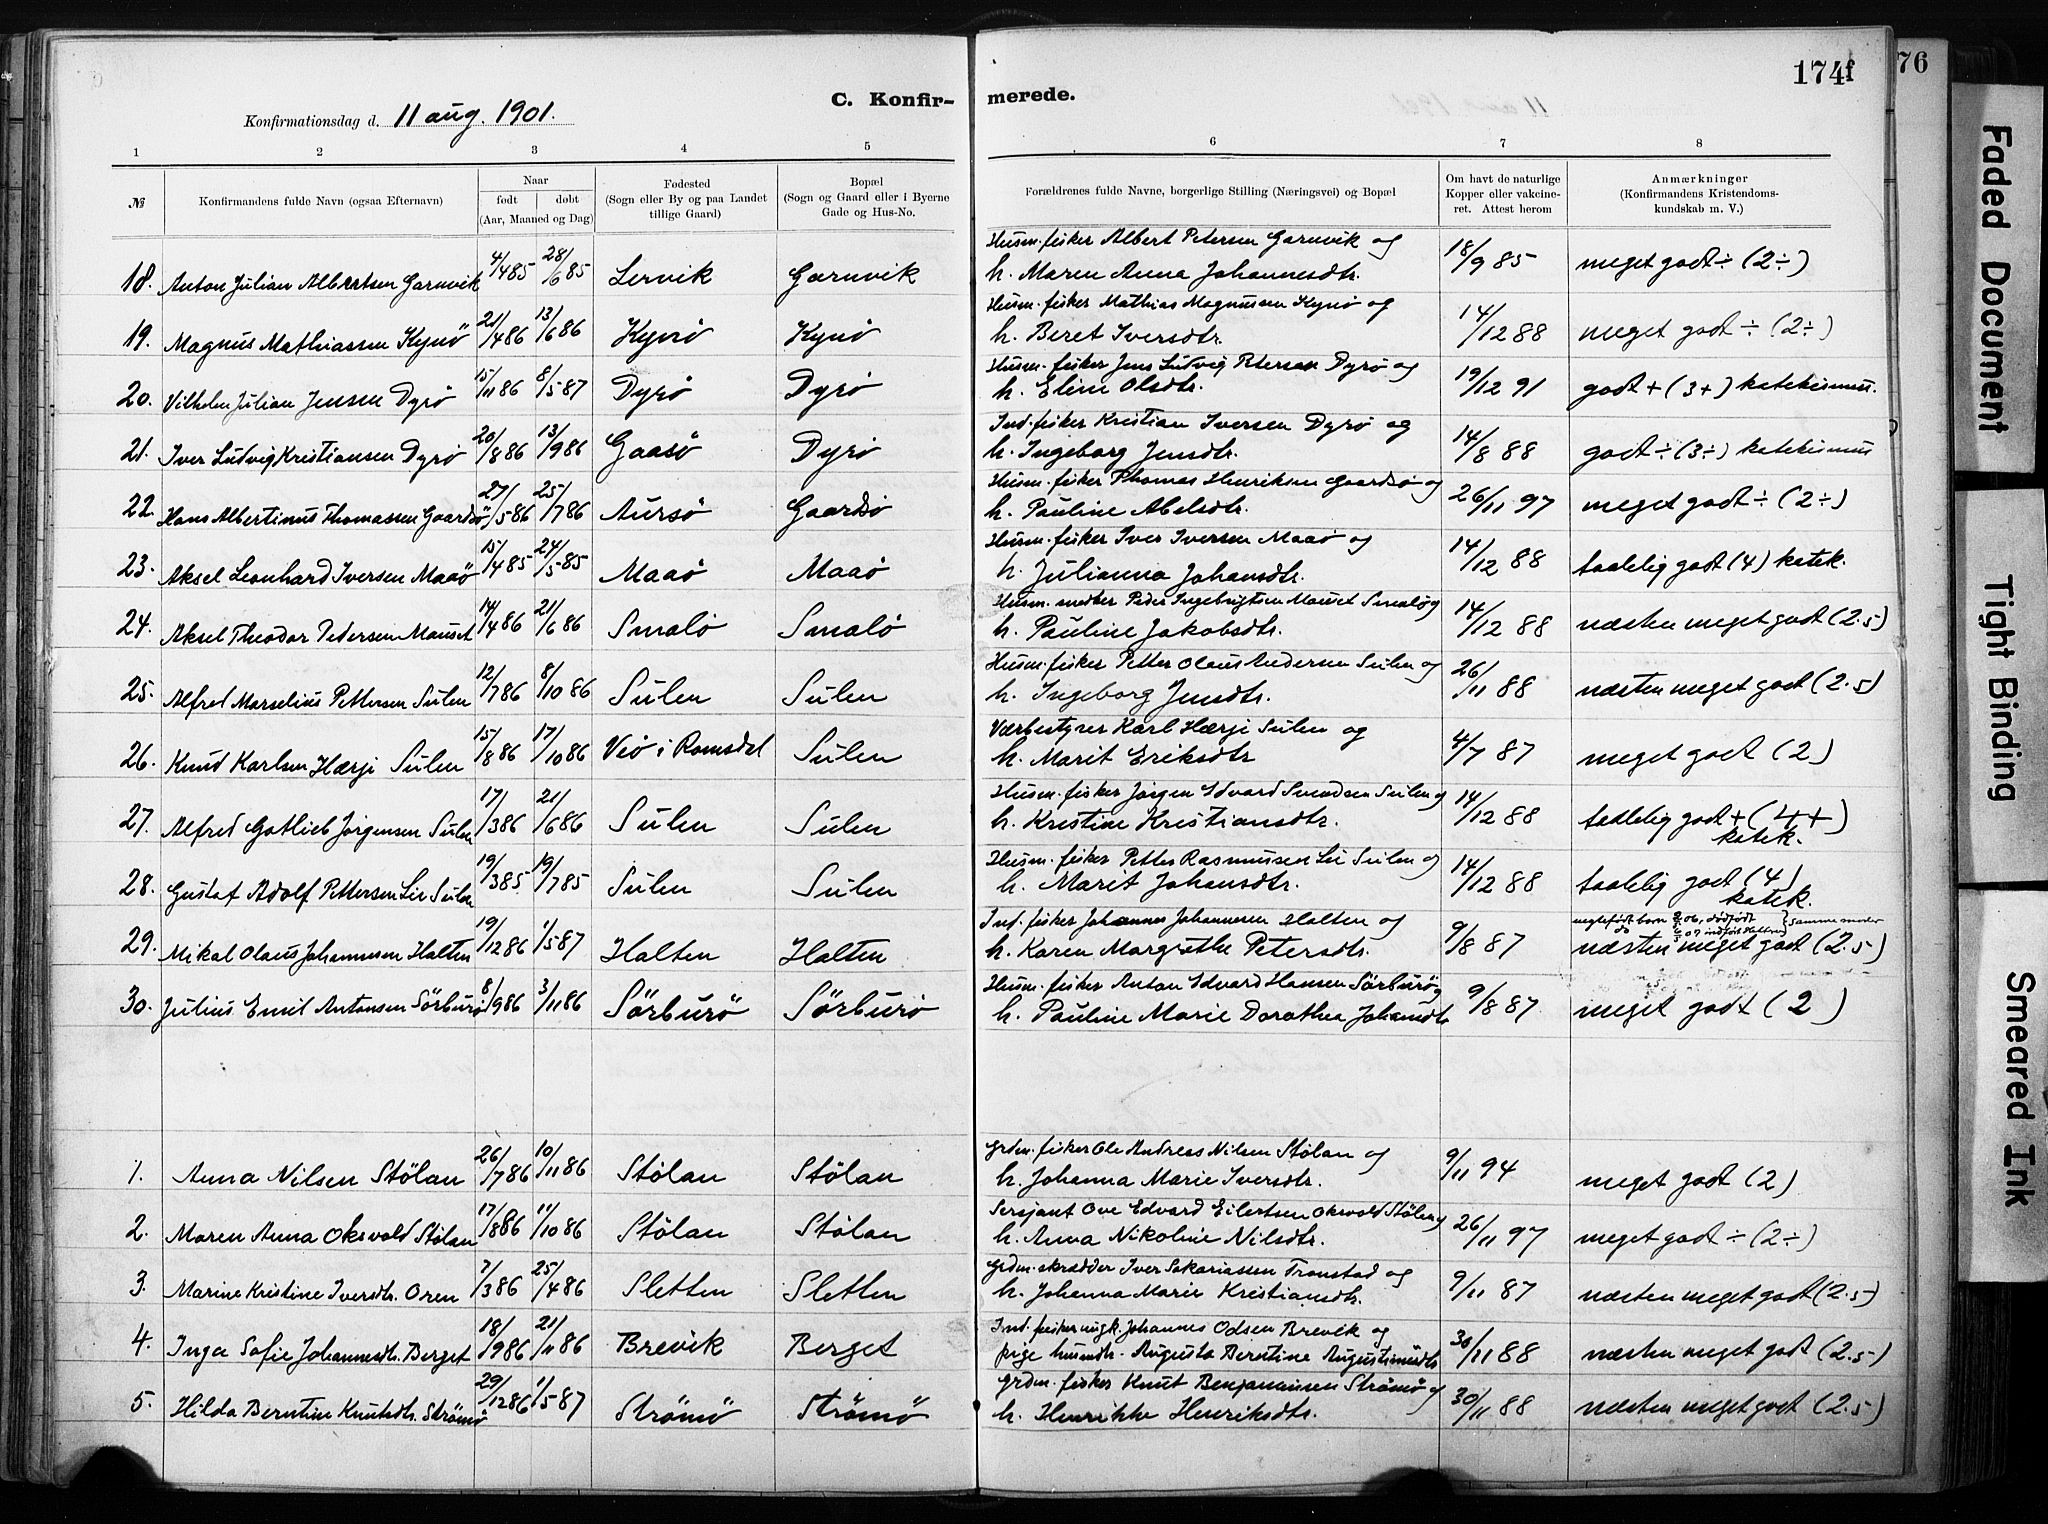 174f
76
C. Konfirmerede.
Konfirmationsdag d. 11 aug. 1901.
1 2 3 4 5 6 7 8
№
Konfirmandens fulde Navn (ogsaa Efternavn)
Naar
født døbt
(Aar, Maaned og Dag)
Fødested
(Sogn eller By og paa Landet
tillige Gaard)
Bopæl
(Sogn og Gaard eller i Byerne
Gade og Hus-No.
Forældrenes fulde Navne, borgerlige Stilling (Næringsvei) og Bopæl
Om havt de naturlige
Kopper eller vakcine-
ret. Attest herom
Anmærkninger
(Konfirmandens Kristendoms-
kundskab m. V.)
Husm. fisker Albert Petersen Garnvik og
18. Anton Julian Albertsen Garnvik 4/4 85 28/6 85 Lervik Garnvik h. Maren Anna Johannesdtr. 18/9 85 meget godt ÷ (2÷)
Husm. fisker Mathias Magnussen Kynø og
19. Magnus Mathiassen Kynø 21/4 86 13/6 86 Kynø Kynø h. Beret Iversdtr. 14/12 88 meget godt ÷ (2÷)
Husm. fisker Jens Ludvig Petersen Dyrø og
20. Vilhelm Julian Jensen Dyrø 15/11 86 8/5 87 Dyrø Dyrø h. Eline Olsdtr. 19/12 91 godt + (3+) katekismus.
Ind. fisker Kristian Iversen Dyrø og
21. Iver Ludvig Kristiansen Dyrø 20/8 86 13/9 86 Gaasø Dyrø h. Ingeborg Jensdtr. 14/8 88 godt ÷ (3÷) katekismus
Husm. fisker Thomas Henriksen Gaardsø og
22. Hans Albertinus Thomassen Gaardsø 27/5 86 25/7 86 Aursø Gaardsø h. Pauline Abelsdtr. 26/11 97 meget godt ÷ (2÷)
Husm. fisker Iver Iversen Maaø og
23. Aksel Leonhard Iversen Maaø 15/4 85 24/5 85 Maaø Maaø h. Julianna Johansdtr. 14/12 88 taalelig godt (4) katek.
Husm. Peder Ingebrigtsen Mauset Smalø og
24. Aksel Theodor Pedersen Mauset 14/4 86 21/6 86 Smalø Smalø h. Pauline Jakobsdtr. 14/12 88 næsten meget godt (2.5)
Husm. fisker Petter Olaus Andersen Sulen og
25. Alfred Marselius Pettersen Sulen 12/7 86 8/10 86 Sulen Sulen h. Ingeborg Jensdtr. 26/11 88 næsten meget godt (2.5)
Værbestyrer Karl Hærje Sulen og
26. Knud Karlsen Hærje Sulen 15/8 86 17/10 86 Veø i Romsdal Sulen h. Marit Eriksdtr 4/7 87 meget godt (2)
Husm. fisker Jørgen Edvard Svendsen Sulen og
27. Alfred Gotlieb Jørgensen Sulen 17/3 86 21/6 86 Sulen Sulen h. Kristine Kristiansdtr. 14/12 88 taalelig godt + (4+)
katek.
Husm. fisker Petter Rasmussen Lie Sulen og
28. Gustaf Adolf Pettersen Lie Sulen 19/3 85 19/7 85 Sulen Sulen h. Marit Johansdtr. 14/12 88 taalelig godt (4)
katek.
Ind. fisker Johannes Johannesen Halten og
29. Mikal Olaus Johannesen Halten 19/12 86 1/5 87 Halten Halten h. Karen Margrethe Petersdtr. 9/8 87 næsten meget godt (2.5)
Husm. fisker Anton Edvard Hansen Sørburø og
30. Julius Emil Antonsen Sørburø 8/9 86 3/11 86 Sørburø Sørburø h. Pauline Marie Dorothea Johansdtr 9/8 87 meget godt (2)
Grdm. fisker Ole Andreas Nilsen Stølan og
1. Anna Nilsen Stølan 26/7 86 10/11 86 Stølan Stølan h. Johanna Marie Iversdtr. 9/11 94 meget godt (2)
Sersjant Ove Edvard Eilertsen Oksvold Stølan og
2. Maren Anna Oksvold Stølan 17/8 86 11/10 86 Stølan Stølan h. Anna Nikoline Nilsdtr. 26/11 97 meget godt ÷ (2÷)
Grdm. skrædder Iver Sakariassen Transtad og
3. Marine Kristine Iversdtr. Oren 7/3 86 25/4 86 Sletten Sletten h. Johanna Marie Kristiansdtr. 9/11 87 næsten meget godt (2.5)
Ind. fisker ungk. Johannes Odsen Brevik og
4. Inga Sofie Johannesdtr. Berget 18/9 86 21/11 86 Brevik Berget pige Augusta Berntine Augustinusdtr 30/11 88 næsten meget godt (2.5)
Grdm. fisker Knut Benjaminsen Strømø og
5. Hilda Berntine Knutsdtr. Strømø 29/12 86 1/5 87 Strømø Strømø h. Henrikke Henriksdtr. 30/11 88 næsten meget godt (2.5)
Faded Document
Tight Binding
Smeared Ink